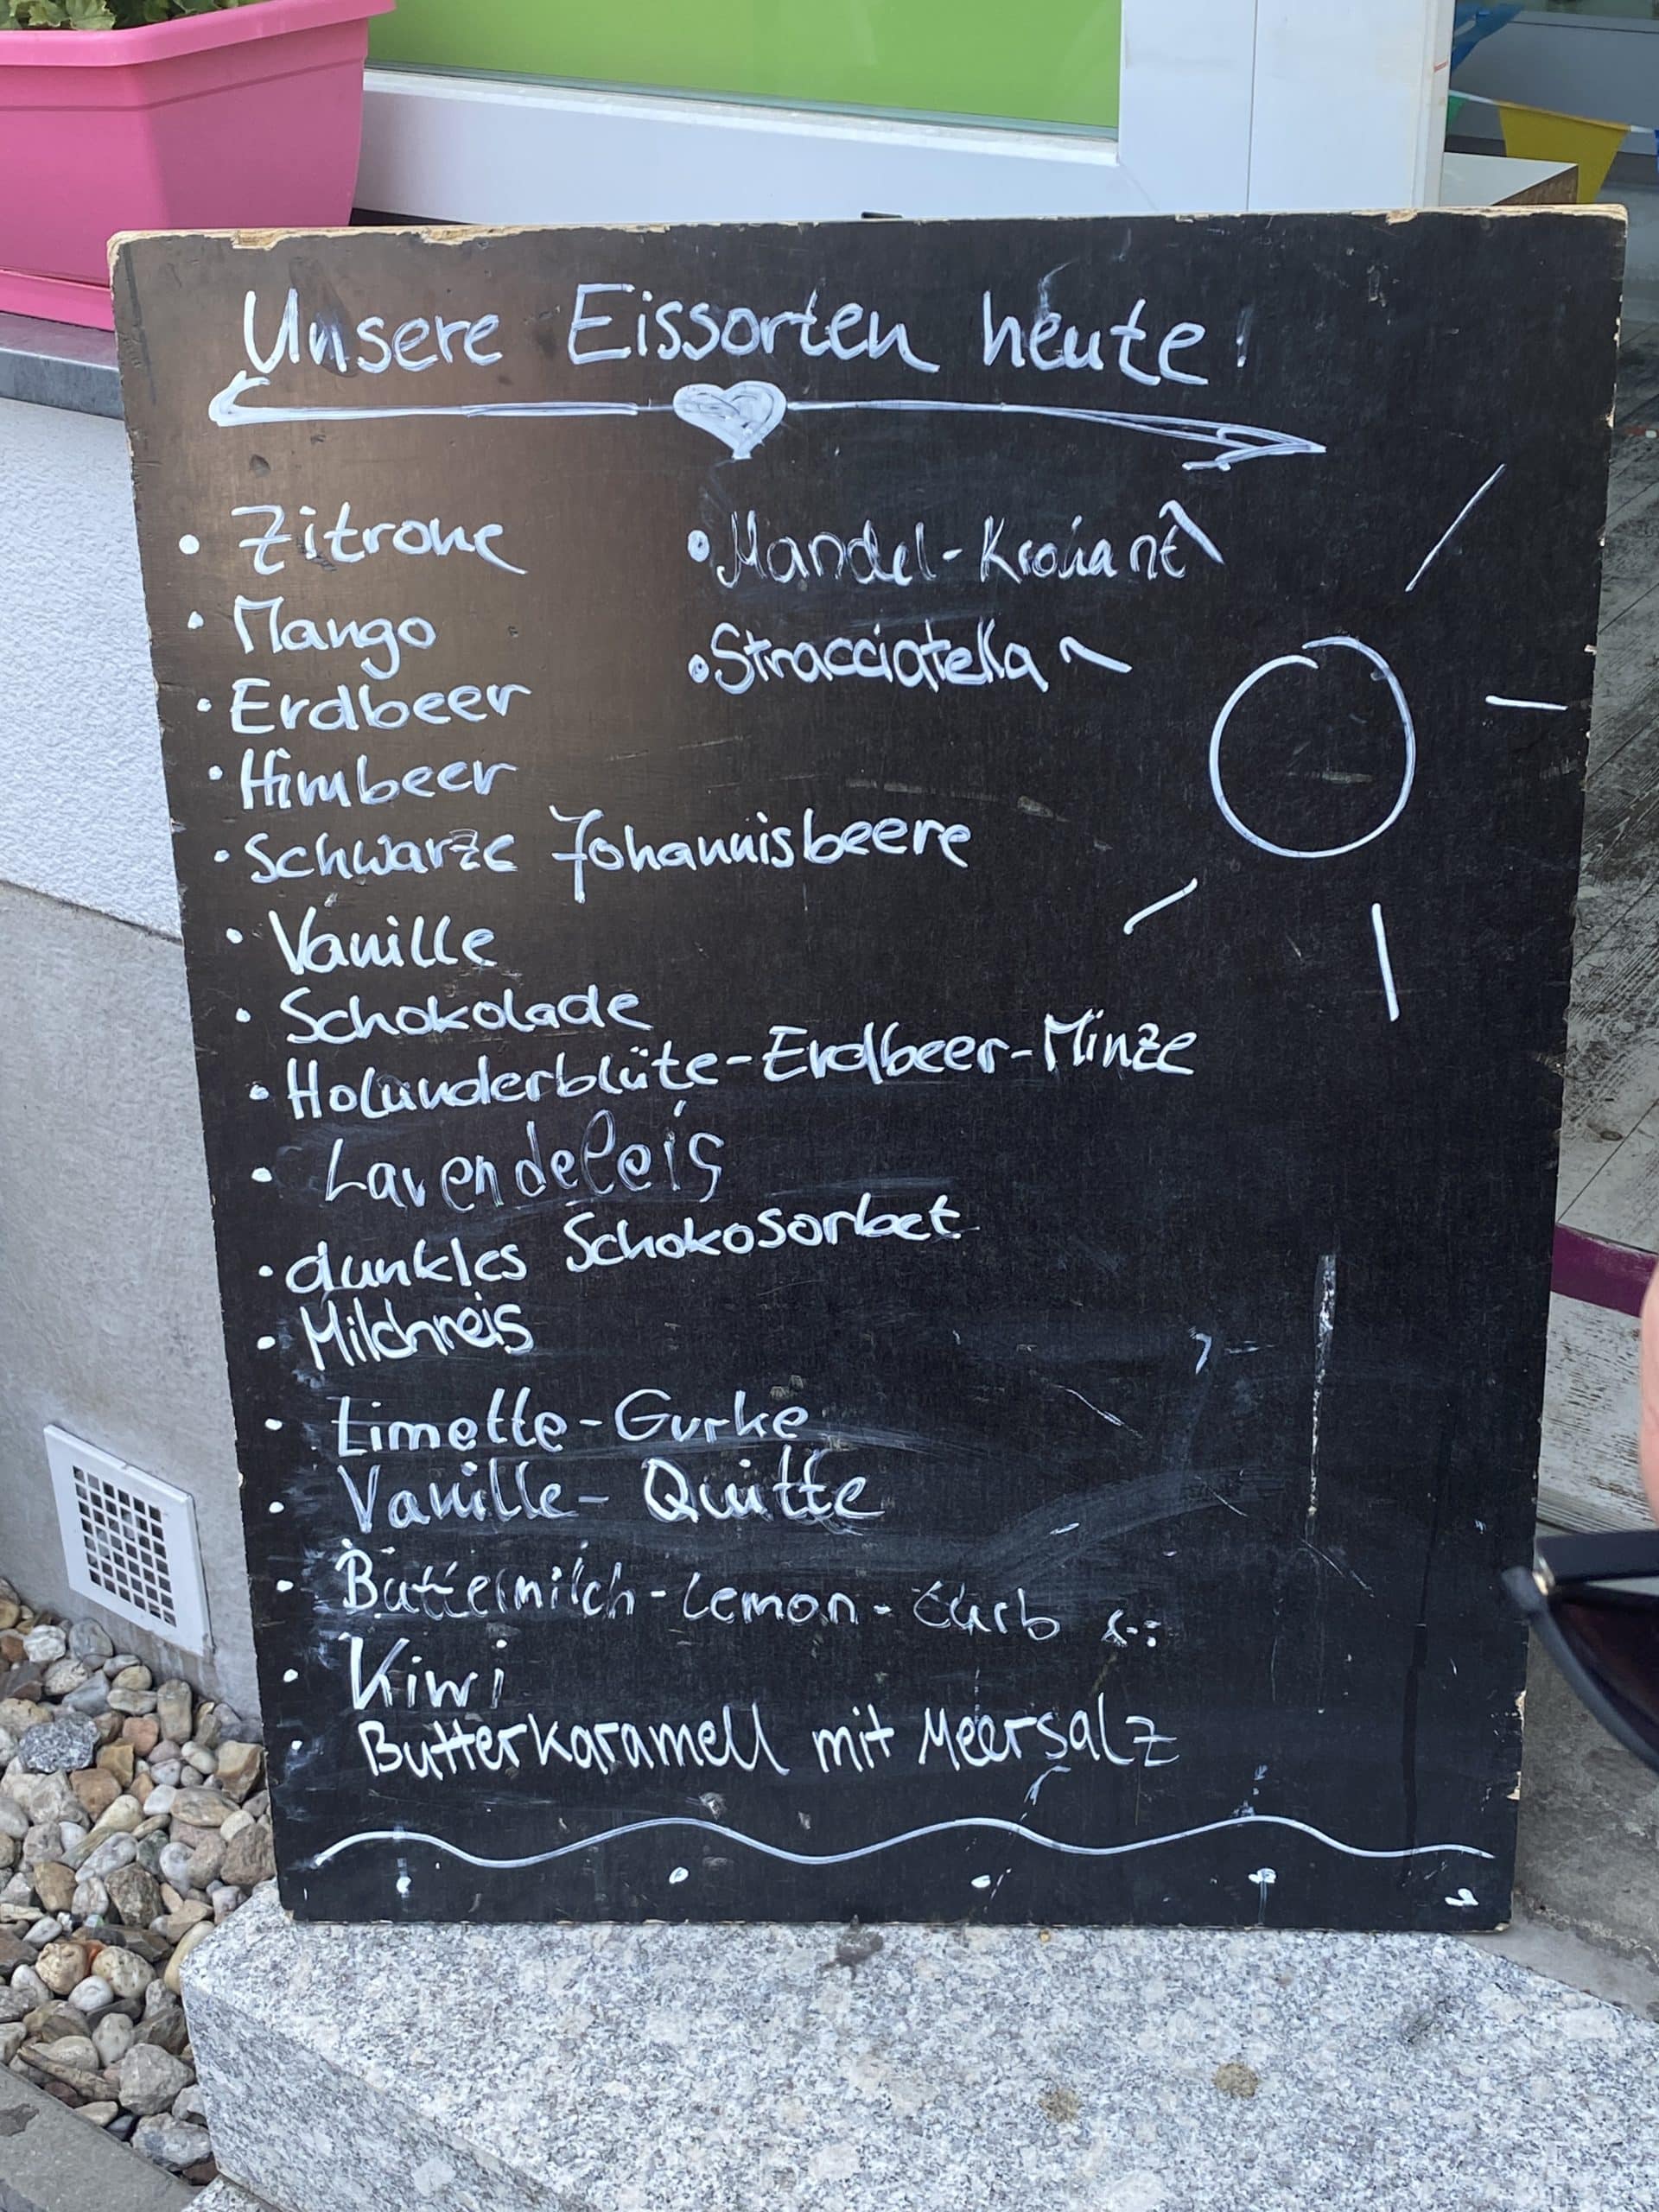 Unsere Eissorten heute!
• Zitrone
• Mango
• Erdbeer
• Himbeer
• Schwarze Johannisbeere
• Vanille
• Schokolade
• Holunderblüte-Erdbeer-Minze
• Lavendeleis
• dunkles Schokosorbet
• Milchreis
• Limette-Gurke
• Vanille-Quitte
• Buttermilch-Lemon-Curb
• Kiwi
• Butterkaramell mit Meersalz
• Mandel-Krokant
• Stracciatella